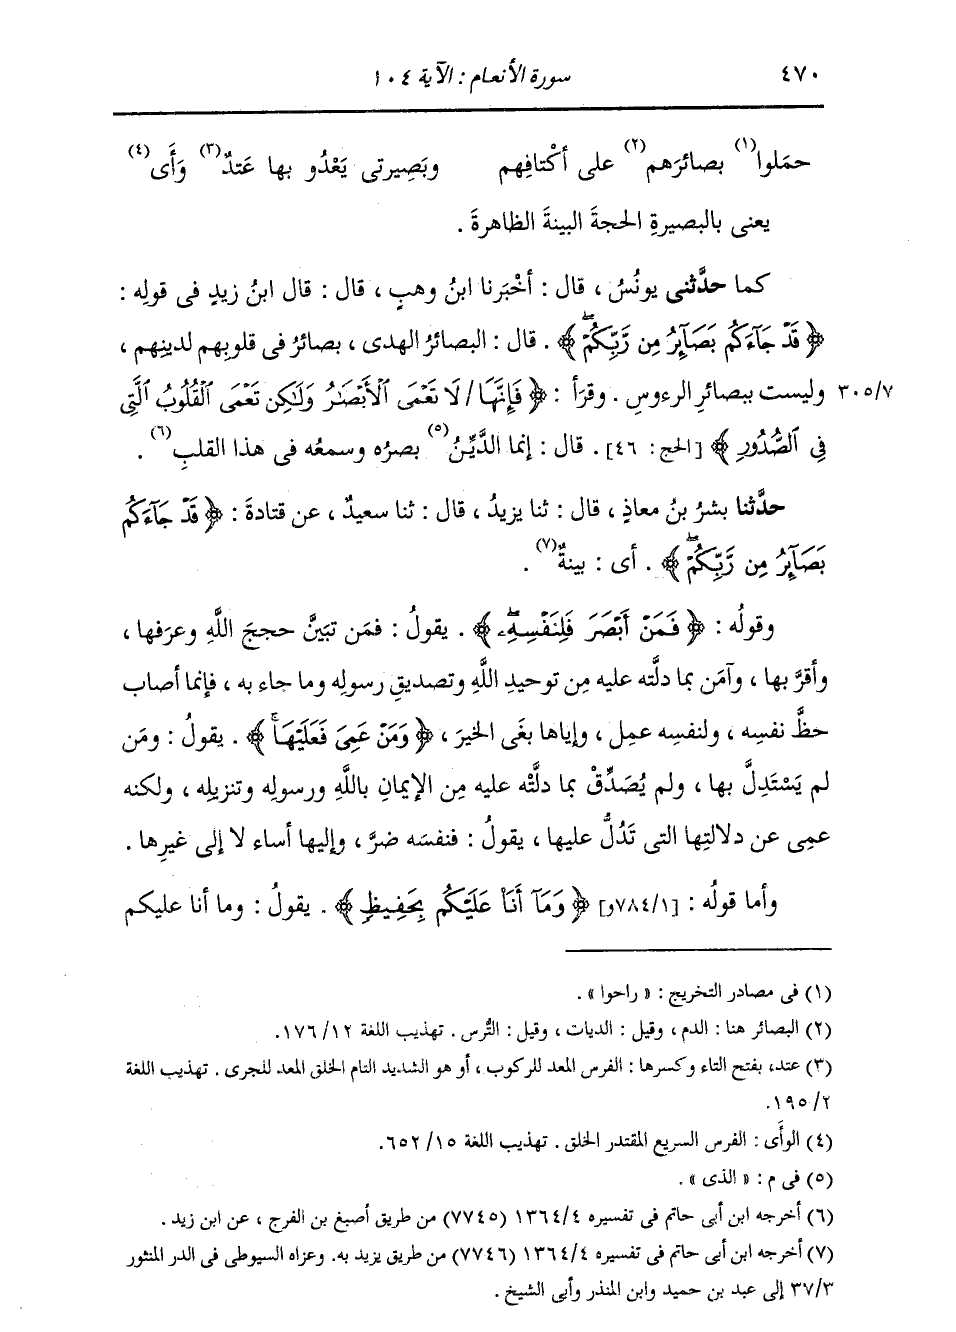 ٤٧٠ سورة الأنعام : الآية ١٠٤
حمَلوا(١) بصائرَهم(٢) على أكْتافِهم وبَصِيرتى يَعْدُو بها عَتَدٌ(٣) وَأَى(٤)
يعنى بالبصيرةِ الحجةَ البينةَ الظاهرةَ .
كما حدَّثنى يونُسُ ، قال : أخْبَرنا ابنُ وهبٍ ، قال : قال ابنُ زيدٍ فى قولِه :
﴿ قَدْ جَآءَكُم بَصَآئِرُ مِن رَّبِّكُمْۖ ﴾ . قال : البصائرُ الهدى ، بصائرُ فى قلوبِهم لدينِهم ،
٣٠٥/٧ وليست ببصائرِ الرءوسِ . وقرَأ : ﴿ فَإِنَّهَا / لَا تَعْمَى ٱلْأَبْصَٰرُ وَلَٰكِن تَعْمَى ٱلْقُلُوبُ ٱلَّتِى
فِى ٱلصُّدُورِ ﴾ [الحج : ٤٦] . قال : إنما الدَّيِّنُ(٥) بصرُه وسمعُه فى هذا القلبِ(٦) .
حدَّثنا بشرُ بنُ معاذٍ ، قال : ثنا يزيدُ ، قال : ثنا سعيدٌ ، عن قتادةَ : ﴿ قَدْ جَآءَكُم
بَصَآئِرُ مِن رَّبِّكُمْۖ ﴾ . أى : بينةٌ(٧) .
وقولُه : ﴿ فَمَنْ أَبْصَرَ فَلِنَفْسِهِۦۖ ﴾ . يقولُ : فمَن تبَيَّن حججَ اللَّهِ وعرَفها ،
وأقرَّ بها ، وآمَن بما دلَّته عليه مِن توحيدِ اللَّهِ وتصديقِ رسولِه وما جاء به ، فإنما أصاب
حظَّ نفسِه ، ولنفسِه عمِل ، وإياها بغَى الخيرَ ، ﴿ وَمَنْ عَمِىَ فَعَلَيْهَاۚ ﴾ . يقولُ : ومَن
لم يَسْتَدِلَّ بها ، ولم يُصَدِّقْ بما دلَّتْه عليه مِن الإيمانِ باللَّهِ ورسولِه وتنزيلِه ، ولكنه
عمِى عن دلالتِها التى تَدُلُّ عليها ، يقولُ : فنفسَه ضرَّ ، وإليها أساء لا إلى غيرِها .
وأما قولُه : [٧٨٤/١و] ﴿ وَمَآ أَنَا۠ عَلَيْكُم بِحَفِيظٍ ﴾ . يقولُ : وما أنا عليكم
(١) فى مصادر التخريج : « راحوا » .
(٢) البصائر هنا : الدم ، وقيل : الديات ، وقيل : التُّرس . تهذيب اللغة ١٧٦/١٢.
(٣) عتد، بفتح التاء وكسرها : الفرس المعد للركوب ، أو هو الشديد التام الخلق المعد للجرى . تهذيب اللغة
١٩٥/٢.
(٤) الوأَى : الفرس السريع المقتدر الخلق . تهذيب اللغة ٦٥٢/١٥.
(٥) فى م : « الذى » .
(٦) أخرجه ابن أبى حاتم فى تفسيره ١٣٦٤/٤ (٧٧٤٥) من طريق أصبغ بن الفرج ، عن ابن زيد .
(٧) أخرجه ابن أبى حاتم فى تفسيره ١٣٦٤/٤ (٧٧٤٦) من طريق يزيد به. وعزاه السيوطى فى الدر المنثور
٣٧/٣ إلى عبد بن حميد وابن المنذر وأبى الشيخ .